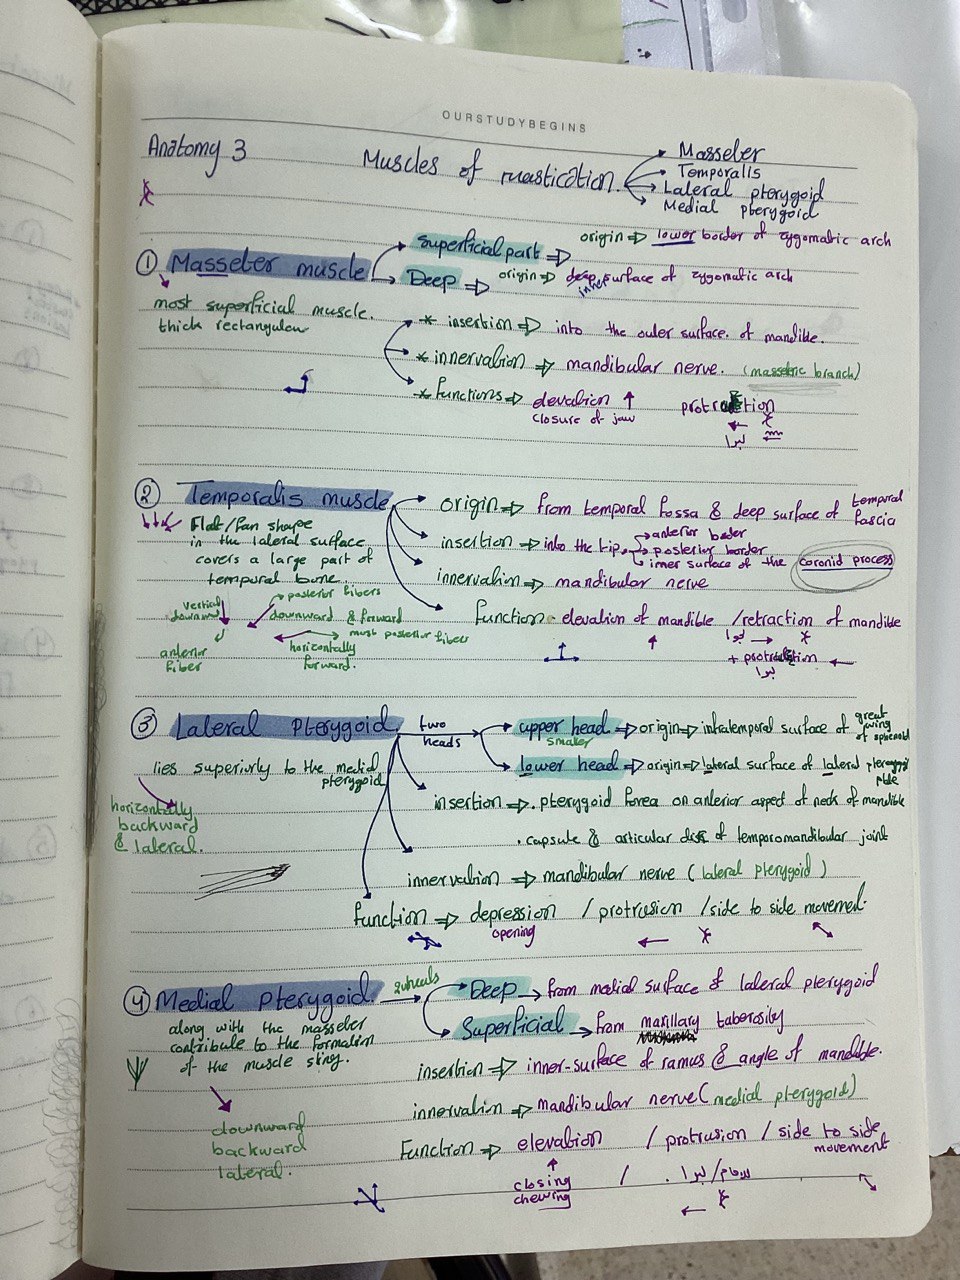 OURSTUDYBEGINS
Anatomy 3
Muscles of mastication.
Masseter
Temporalis
Lateral pterygoid
Medial pterygoid
① Masseter muscle
superficial part ⇒ origin ⇒ lower border of zygomatic arch
Deep ⇒ origin ⇒ deep surface of zygomatic arch
inner
most superficial muscle.
thick rectangular
* insertion ⇒ into the outer surface of mandible.
* innervation ⇒ mandibular nerve. (masseteric branch)
* functions ⇒ elevation ↑
closure of jaw
برا
② Temporalis muscle
Flat/Fan shape
in the lateral surface
covers a large part of
temporal bone.
origin ⇒ from temporal fossa & deep surface of temporal fascia
insertion ⇒ into the tip,
anterior border
posterior border
inner surface of the coronid process
innervation ⇒ mandibular nerve
Function elevation of mandible / retraction of mandible
برا
برا
vertical
downward
anterior
fiber
posterior fibers
downward & forward
most posterior fibers
horizontally
forward.
③ Lateral pterygoid
two
heads
upper head ⇒ origin ⇒ infratemporal surface of great wing of sphenoid
smaller
lower head ⇒ origin ⇒ lateral surface of lateral pterygoid plate
lies superiorly to the medial
pterygoid
horizontally
backward
& lateral.
insertion ⇒ . pterygoid fovea on anterior aspect of neck of mandible
. capsule & articular disk of temporomandibular joint
innervation ⇒ mandibular nerve (lateral pterygoid)
function ⇒ depression / protrusion / side to side movement.
opening
④ Medial pterygoid
Deep → from medial surface of lateral pterygoid
Superficial → from maxillary tuberosity
along with the masseter
contribute to the formation
of the muscle sling.
downward
backward
lateral.
insertion ⇒ inner-surface of ramus & angle of mandible.
innervation ⇒ mandibular nerve (medial pterygoid)
Function ⇒ elevation / protrusion / side to side
movement
closing
chewing
/
برا